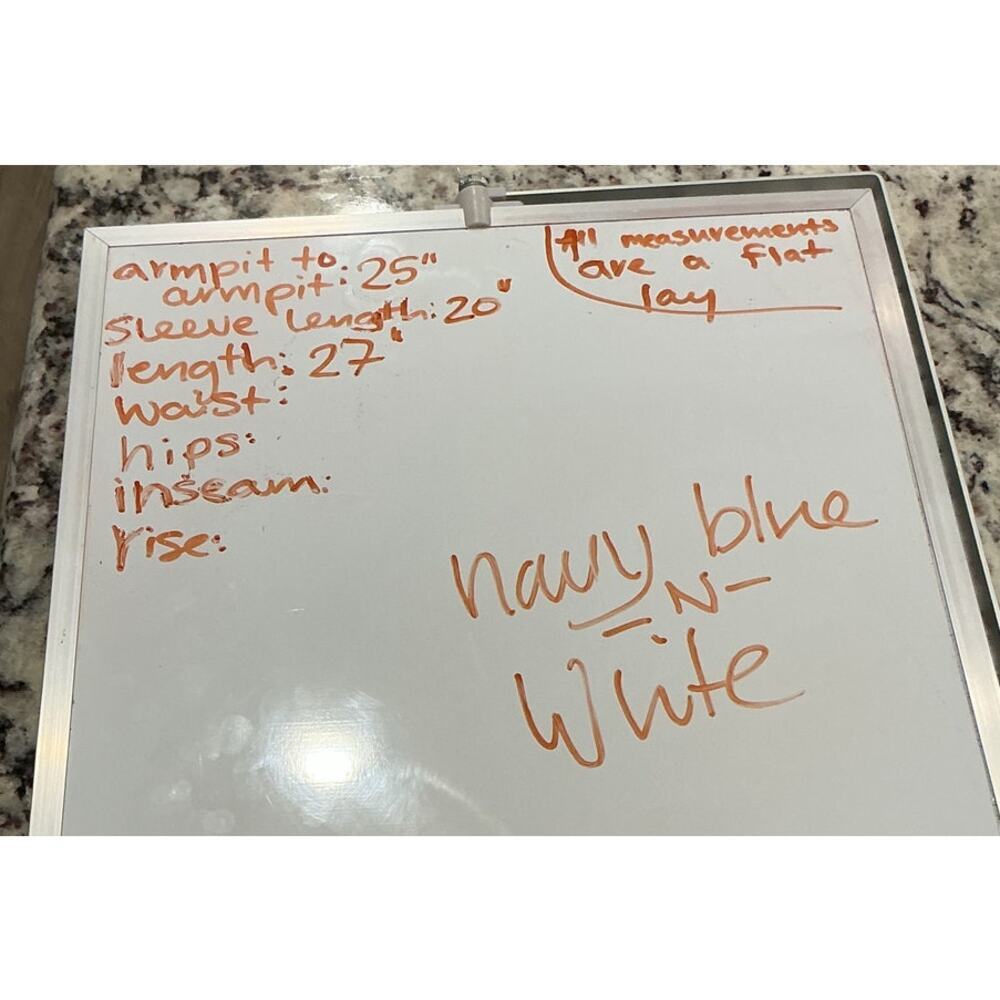 armpit to
armpit: 25"
sleeve length: 20"
length: 27"
waist:
hips:
inseam:
rise:
All measurements
are a flat
lay
navy blue
- N -
White